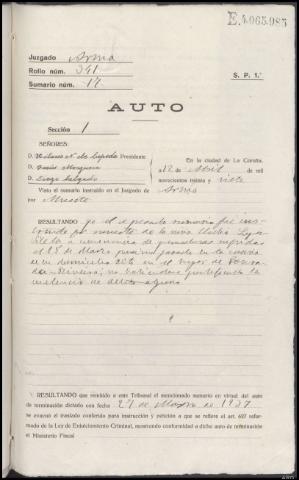 E.4.065.983
Juzgado Arzúa
Rollo núm. 341
Sumario núm. 17
S. P. 1.ª
AUTO
Sección 1
SEÑORES:
D. Presidente
D. Jesús
D. Diego Salgado
En la ciudad de La Coruña,
a 12 de Abril de mil
novecientos treinta y siete
Visto el sumario instruído en el Juzgado de Arzúa
por Muerte
RESULTANDO que el presente sumario fue ins-
truido por muerte de la niña
a consecuencia de quemaduras sufridas
el 28 de Marzo pasado en la
en su domicilio sito en el lugar de
no
la existencia de delito alguno
RESULTANDO que remitido a este Tribunal el mencionado sumario en virtud del auto
de terminación dictado con fecha 27 de Marzo de 1937
se evacuó el traslado conferido para instrucción y petición a que se refiere el art. 627 refor-
mado de la Ley de Enjuiciamiento Criminal, mostrando conformidad a dicho auto de terminación
el Ministerio Fiscal